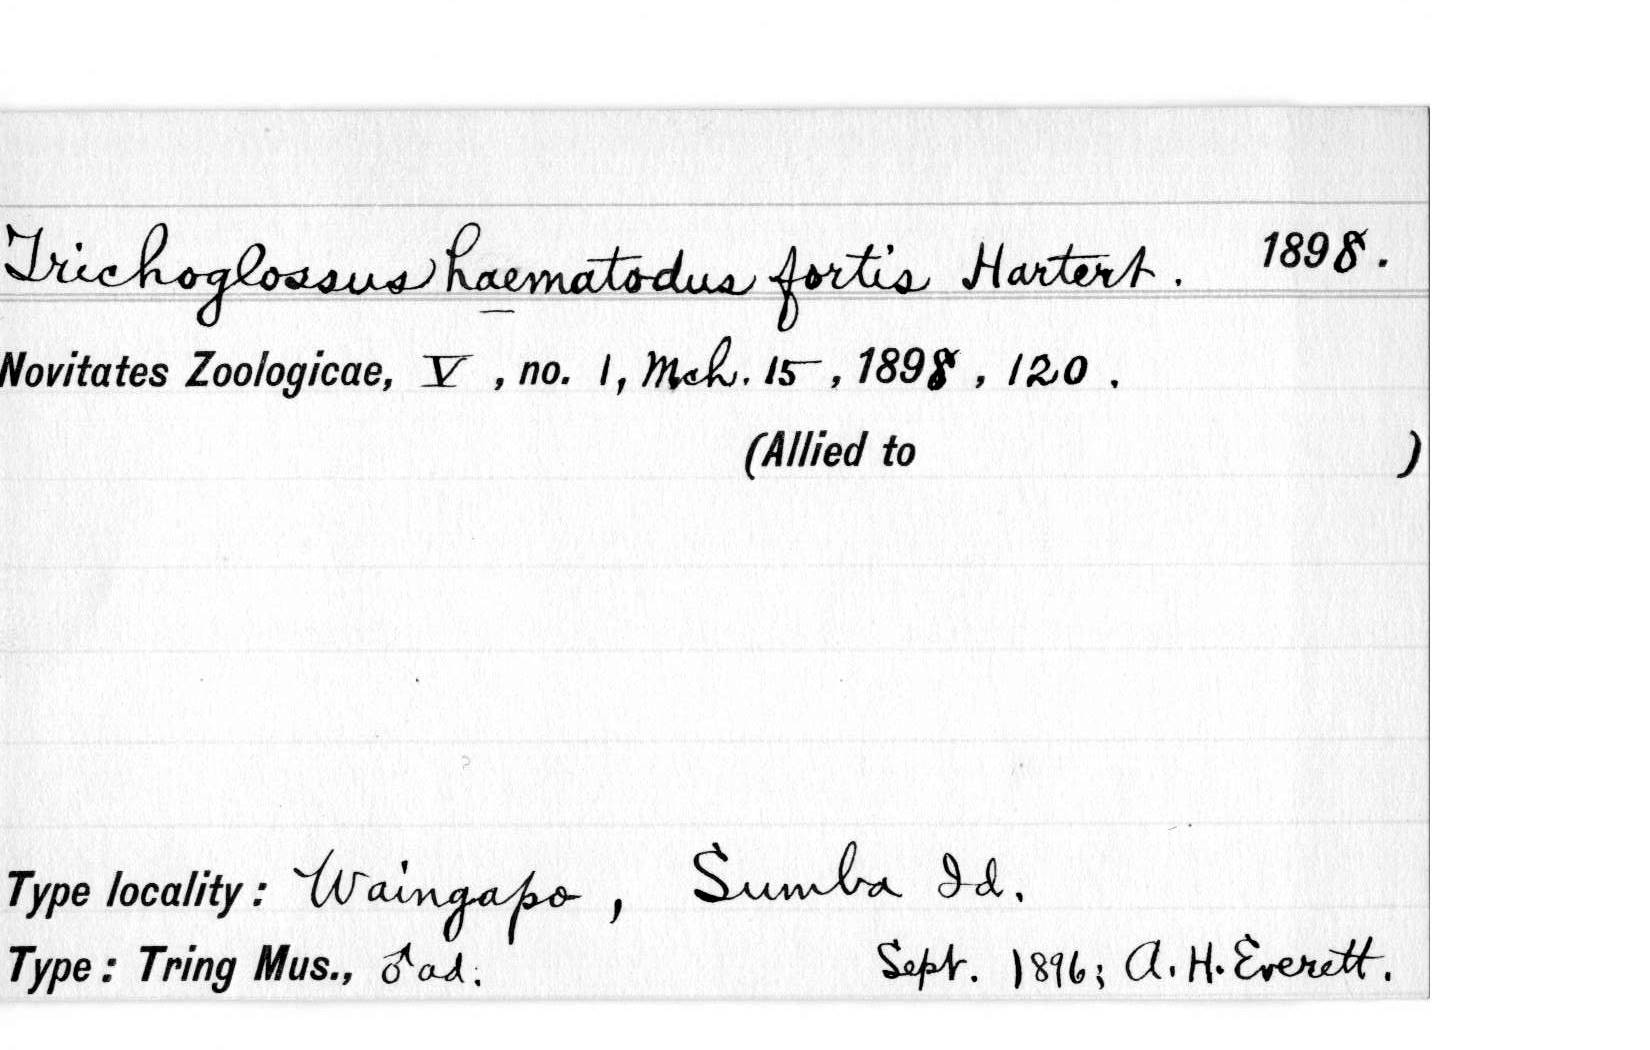 Trichoglossus haematodus fortis Hartert. 1898.
Novitates Zoologicae, V, no. 1, Mch. 15, 1898, 120.
(Allied to )
Type locality: Waingapo, Sumba Id.
Type: Tring Mus., ♂ ad. Sept. 1896; A. H. Everett.